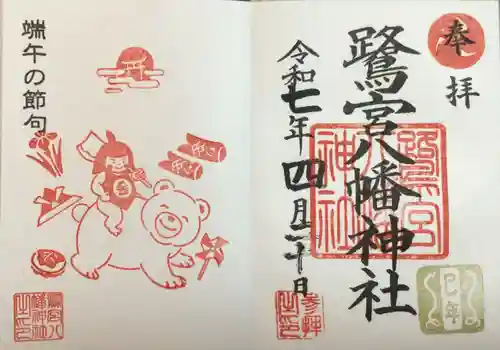 奉拝
鷺宮八幡神社
令和七年四月二十日
鷺宮八幡神社
巳年
参拝
端午の節句
金